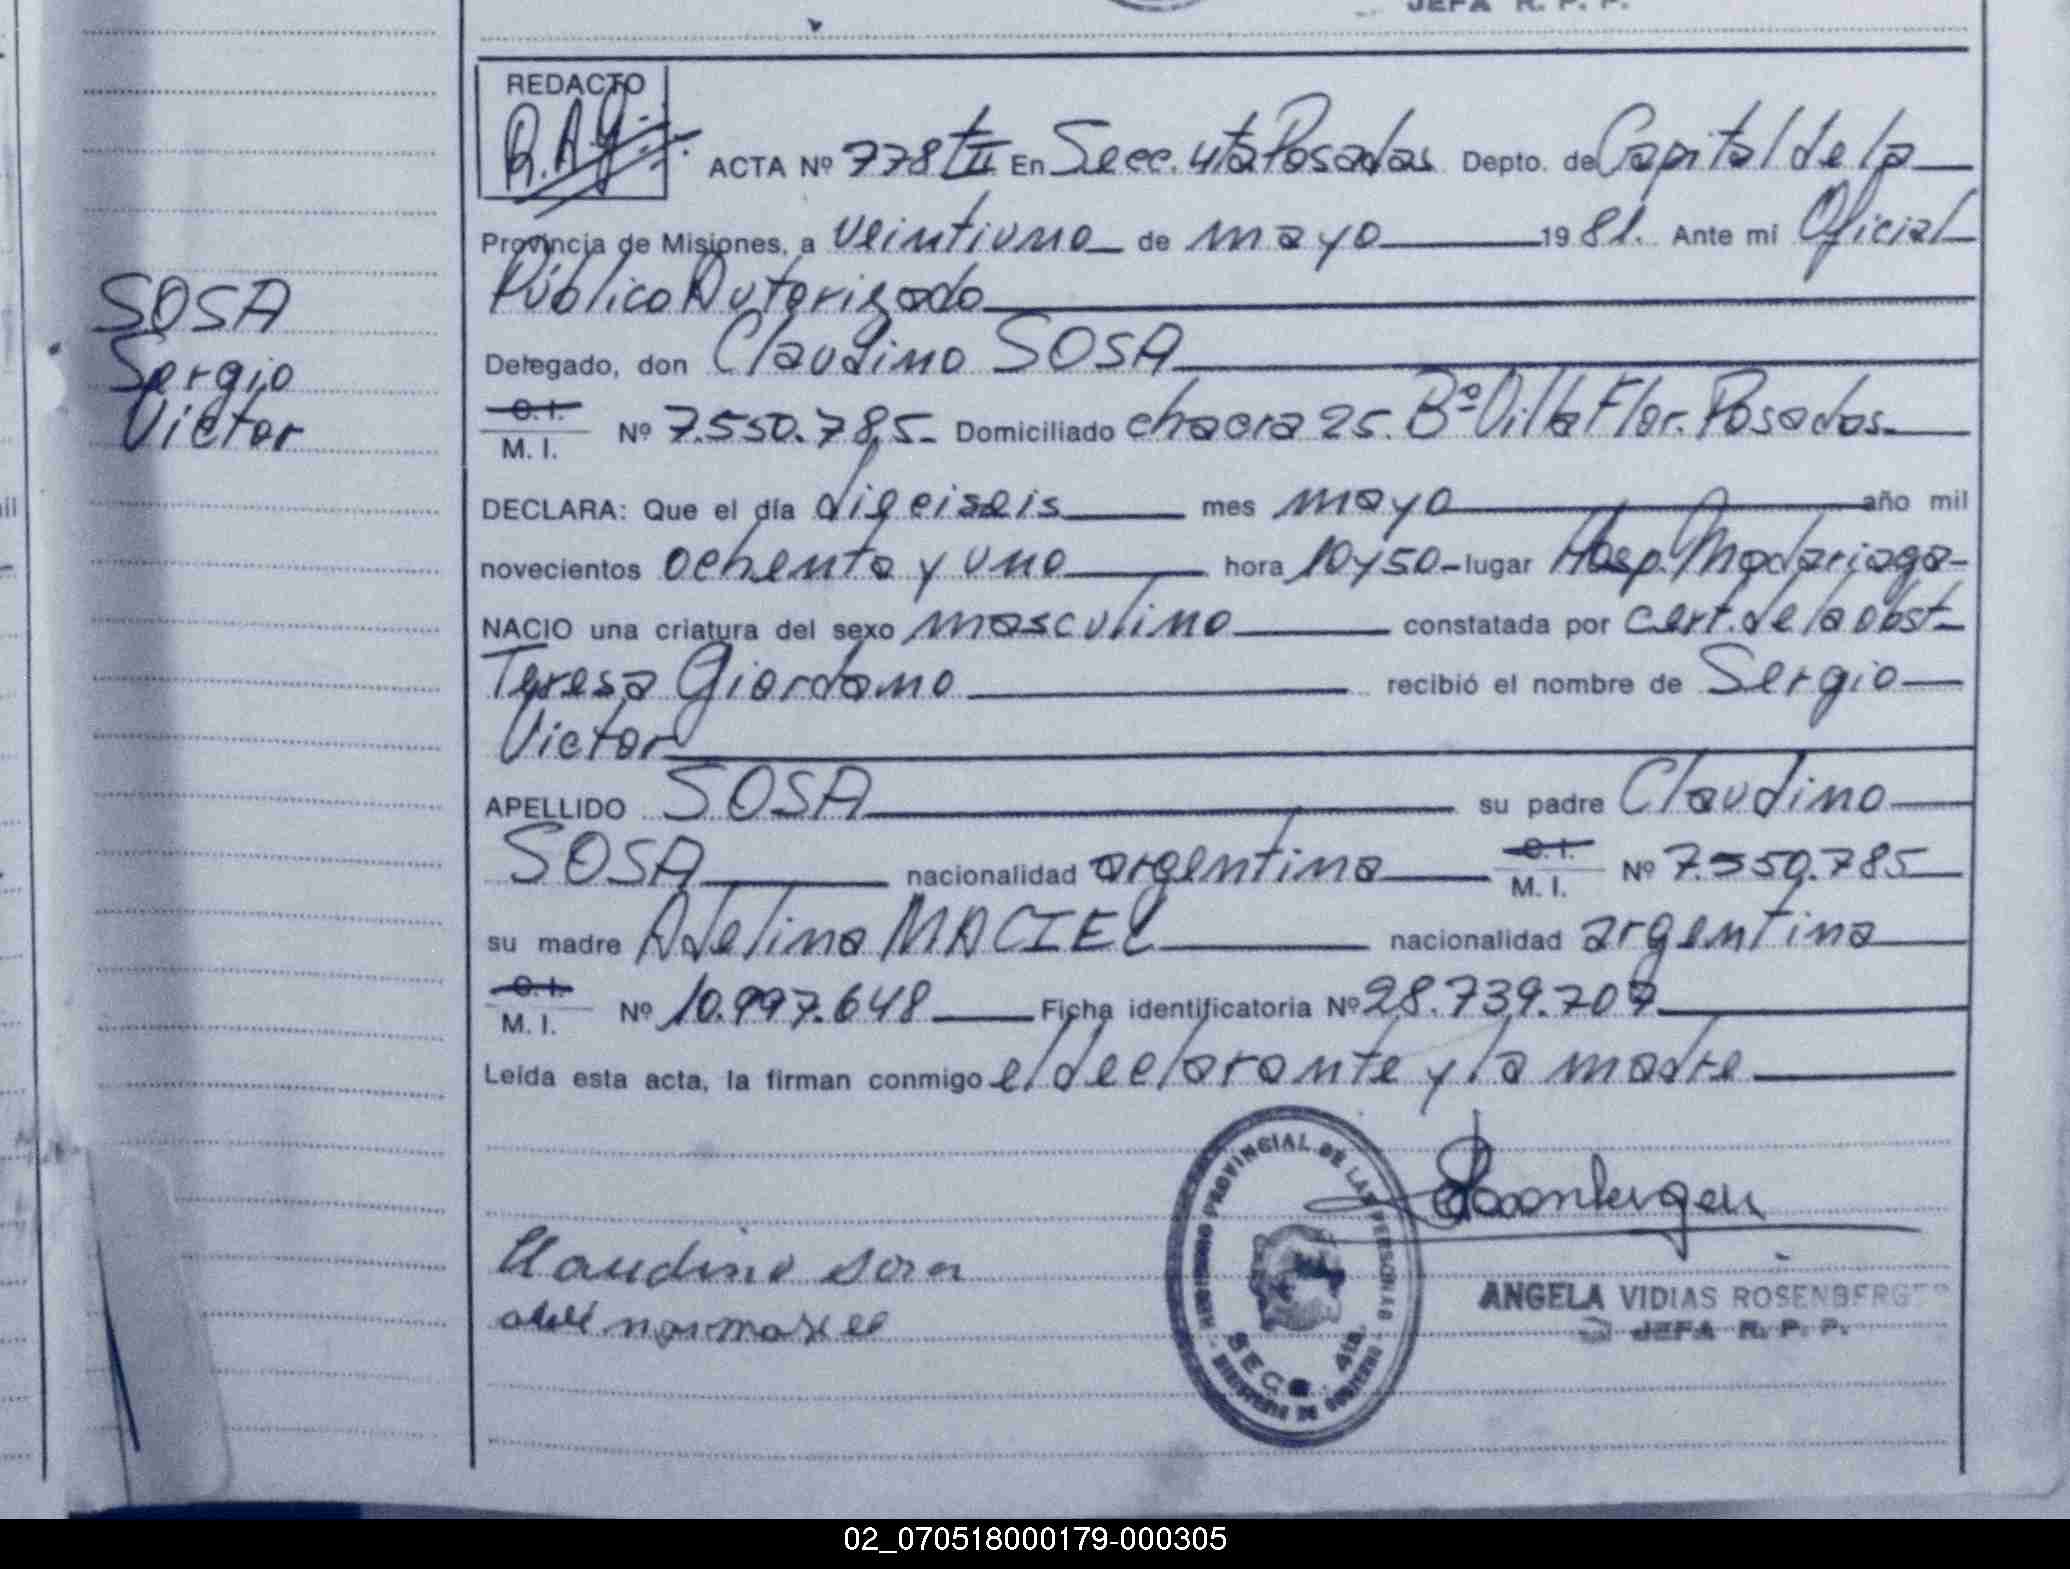 JEFA R. P. P.
REDACTO
R.A.G.
ACTA Nº 778 tII En Secc. 4ta Posadas Depto. de Capital de la
Provincia de Misiones, a veintiuno de mayo 1981. Ante mi Oficial
Público Autorizado
Delegado, don Claudino SOSA
C. I.
M. I. Nº 7.550.785- Domiciliado chacra 25. Bº Villa Flor. Posadas.
DECLARA: Que el día dieciseis mes mayo año mil
novecientos ochenta y uno hora 10y50-lugar Hosp. Madariaga-
NACIO una criatura del sexo masculino constatada por cert. de la obst-
Teresa Giordano recibió el nombre de Sergio
Victor
APELLIDO SOSA su padre Claudino
SOSA nacionalidad argentina C. I. M. I. Nº 7.550.785
su madre Adelina MACIEL nacionalidad argentina
C. I.
M. I. Nº 10.997.648 Ficha identificatoria Nº 28.739.707
Leída esta acta, la firman conmigo el declarante y la madre
SOSA
Sergio
Victor
Claudino Sosa
REGISTRO PROVINCIAL DE LAS PERSONAS
SECC. 4ta.
MINISTERIO DE GOBIERNO
ANGELA VIDIAS ROSENBERGER
JEFA R. P. P.
02_070518000179-000305